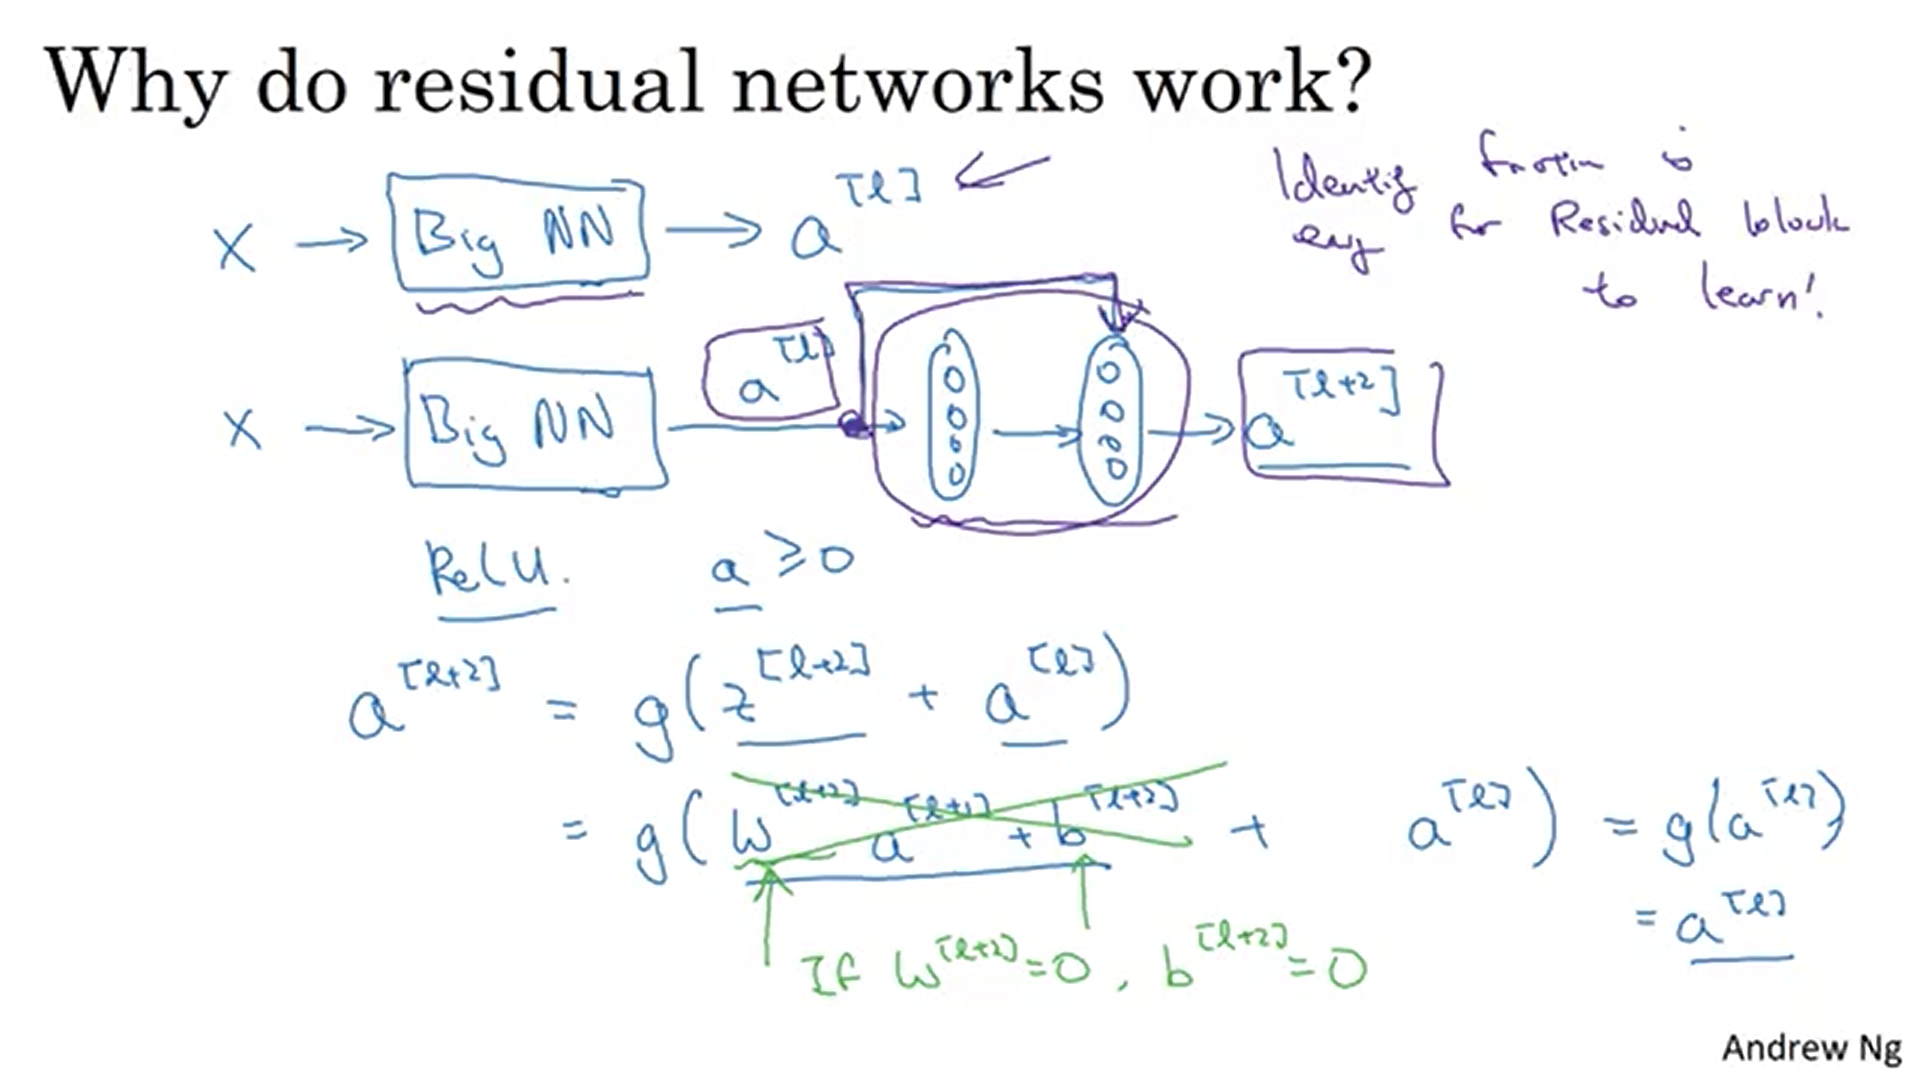 Why do residual networks work?
X → Big NN → a^[l] ←
Identity function is
easy for Residual block
to learn!
X → Big NN a^[l] → → a^[l+2]
ReLU. a ≥ 0
a^[l+2] = g(z^[l+2] + a^[l])
= g(W^[l+2] a^[l+1] + b^[l+2] + a^[l]) = g(a^[l])
= a^[l]
If W^[l+2] = 0, b^[l+2] = 0
Andrew Ng